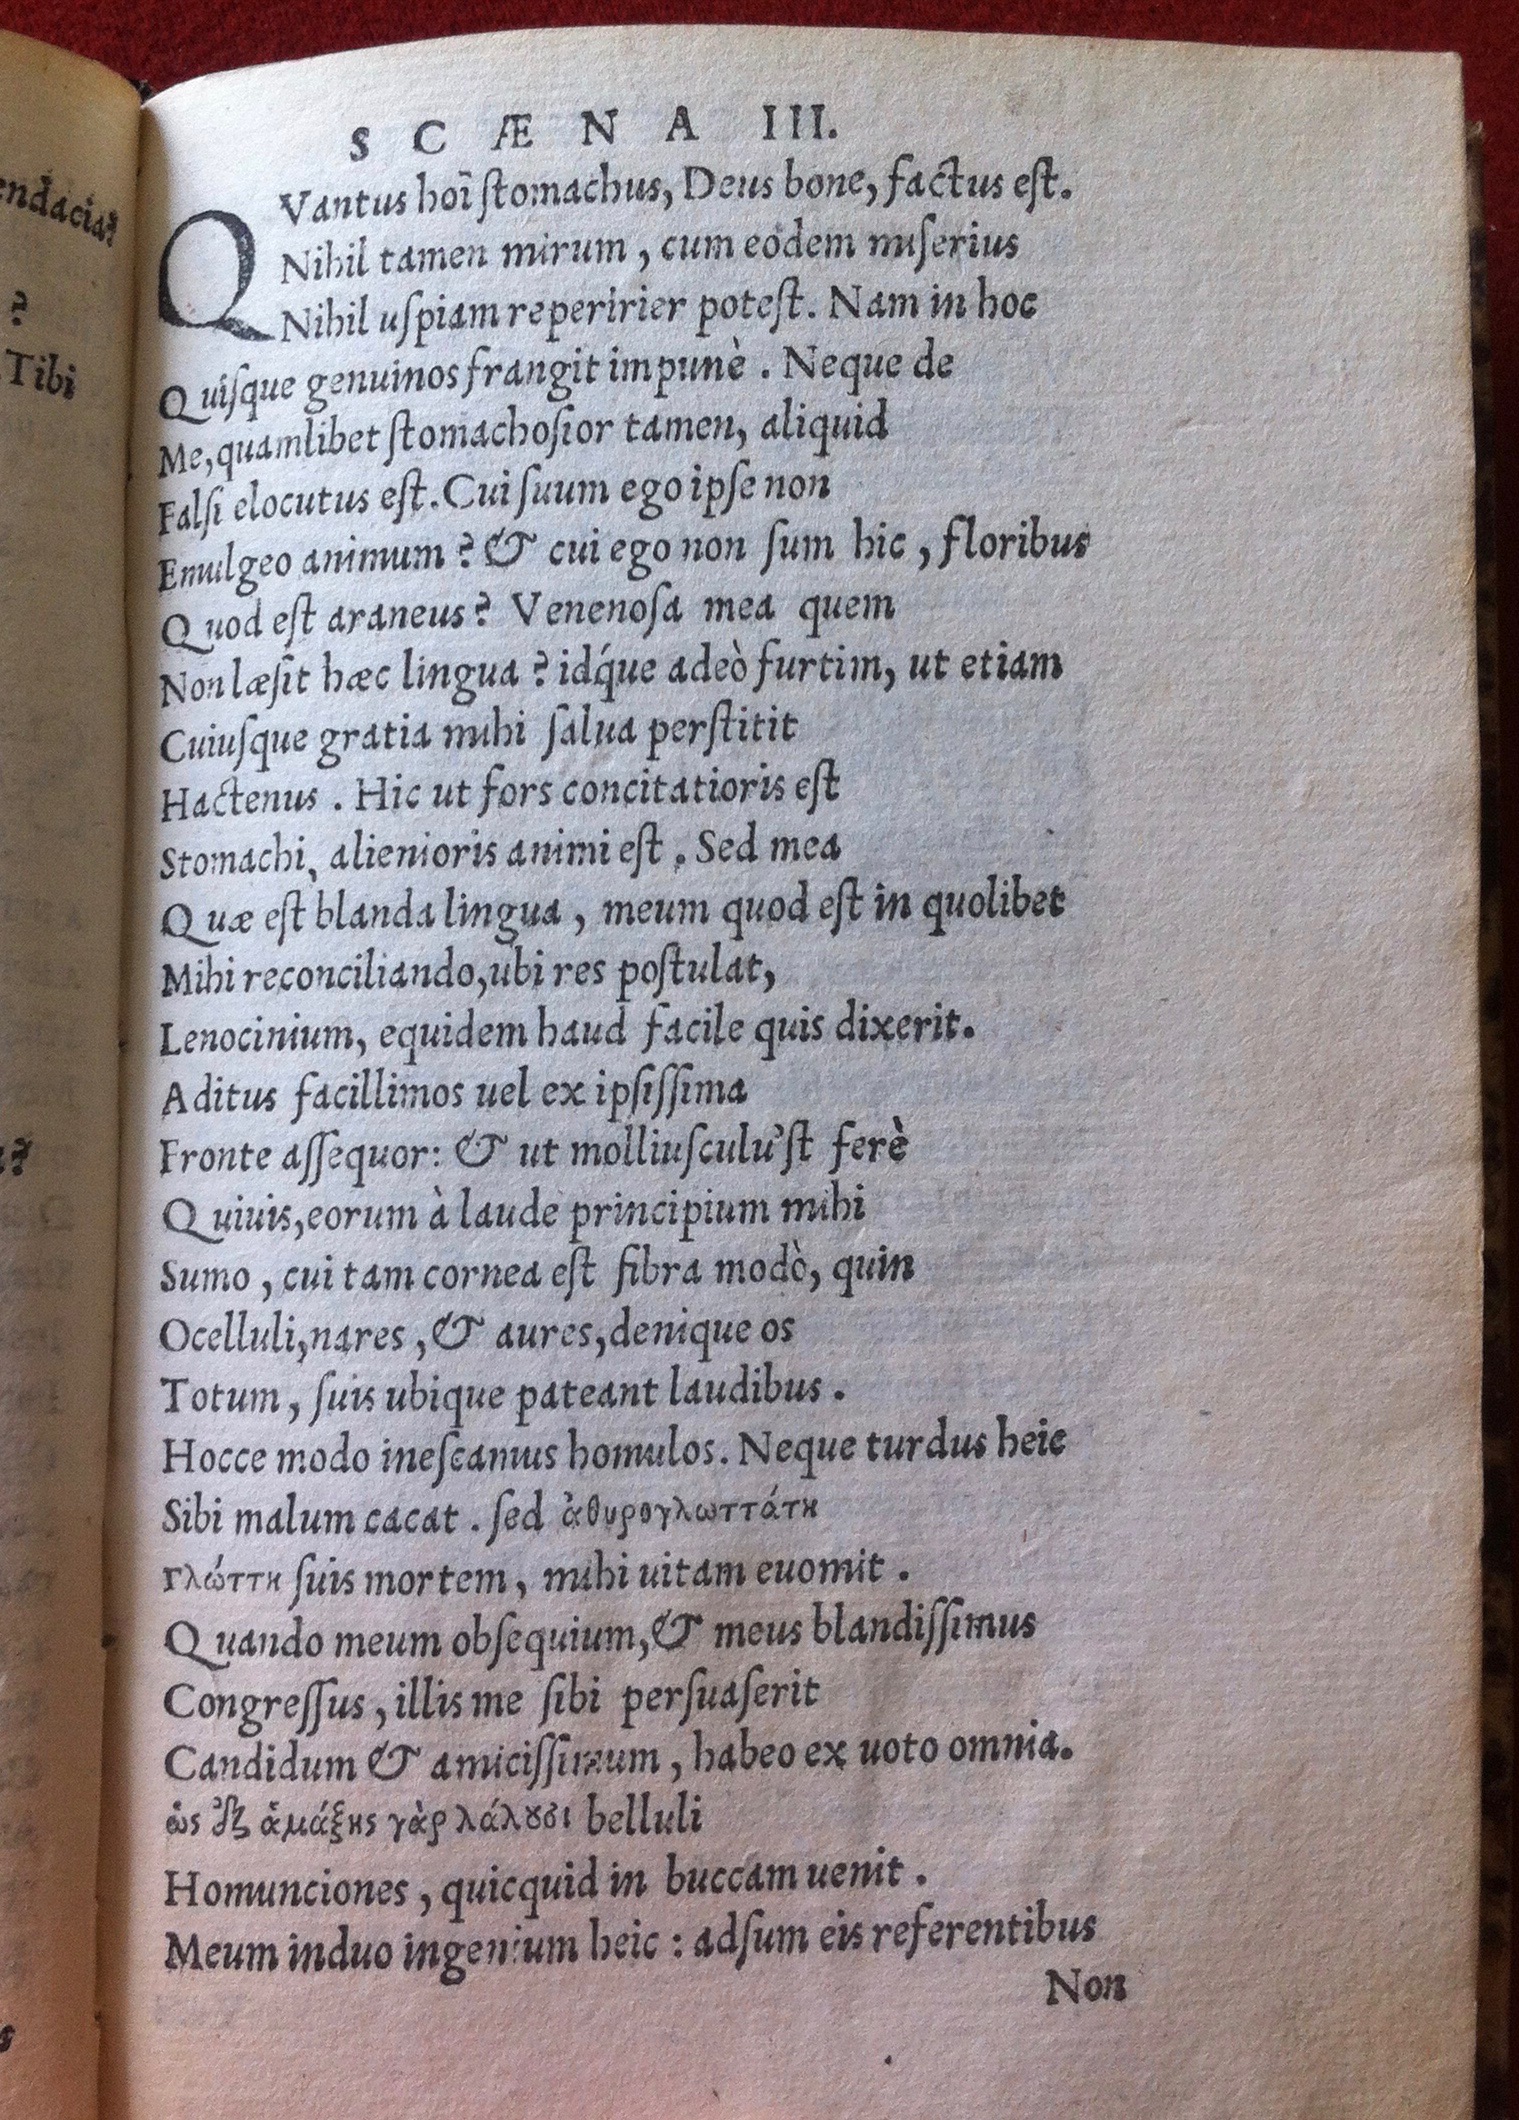 endacia?
?
Tibi
?
s
SCÆNA III.
QVantus hoĩ ſtomachus, Deus bone, factus eſt.
Nihil tamen mirum, cum eodem miſerius
Nihil uſpiam reperirier poteſt. Nam in hoc
Quiſque genuinos frangit impunè. Neque de
Me, quamlibet ſtomachoſior tamen, aliquid
Falſi elocutus eſt. Cui ſuum ego ipſe non
Emulgeo animum? & cui ego non ſum hic, floribus
Quod eſt araneus? Venenoſa mea quem
Non læſit hæc lingua? idq́ue adeò furtim, ut etiam
Cuiuſque gratia mihi ſalua perſtitit
Hactenus. Hic ut fors concitatioris eſt
Stomachi, alienioris animi eſt. Sed mea
Quæ eſt blanda lingua, meum quod eſt in quolibet
Mihi reconciliando, ubi res poſtulat,
Lenocinium, equidem haud facile quis dixerit.
Aditus facillimos uel ex ipſiſſima
Fronte aſſequor: & ut molliuſculu'ſt ferè
Quiuis, eorum à laude principium mihi
Sumo, cui tam cornea eſt fibra modò, quin
Ocelluli, nares, & aures, denique os
Totum, ſuis ubique pateant laudibus.
Hocce modo ineſcamus homulos. Neque turdus heic
Sibi malum cacat. ſed ἀθυρογλωττάτη
γλώττη ſuis mortem, mihi uitam euomit.
Quando meum obſequium, & meus blandiſſimus
Congreſſus, illis me ſibi perſuaſerit
Candidum & amiciſſimum, habeo ex uoto omnia.
ὡς ἐξ ἁμάξης γὰρ λάλουσι belluli
Homunciones, quicquid in buccam uenit.
Meum induo ingenium heic: adſum eis referentibus
Non